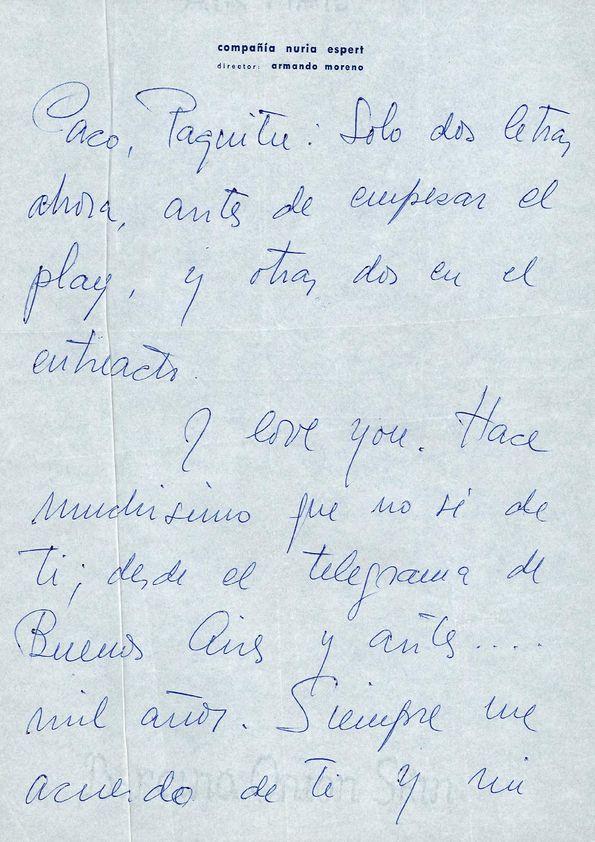 compañía nuria espert
director: armando moreno
Paco, Paquito: Solo dos letras
ahora, antes de empezar el
play, y otras dos en el
entreacto.
I love you. Hace
muchisimo que no sé de
ti; desde el telegrama de
Buenos Aires y antes.....
mil años. Siempre me
acuerdo de ti y mi